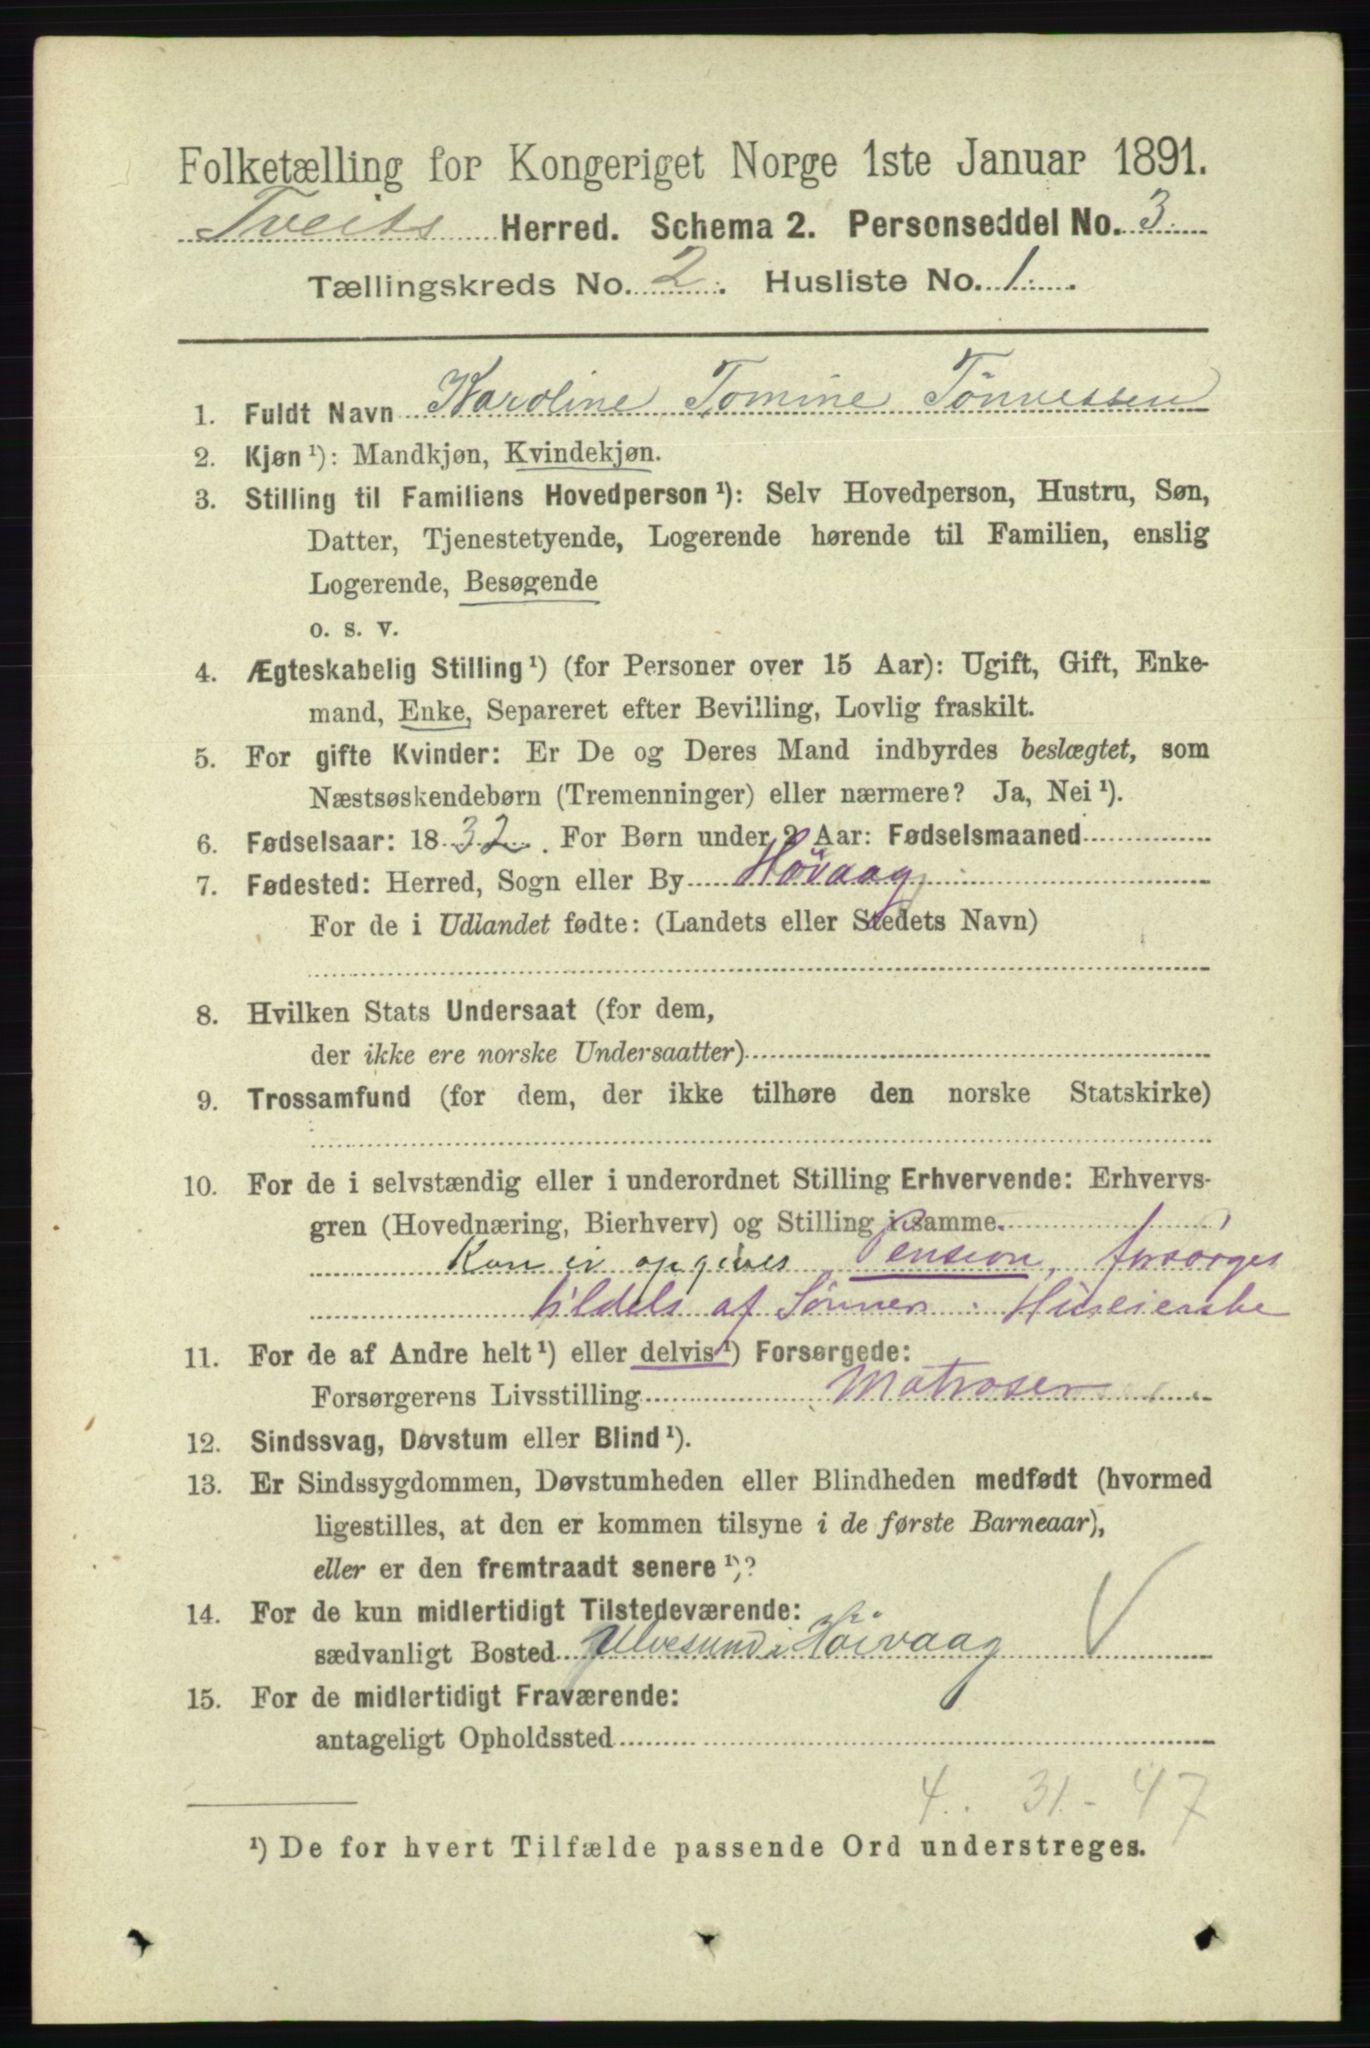 Folketælling for Kongeriget Norge 1ste Januar 1891.
Tveits Herred. Schema 2. Personseddel No. 3
Tællingskreds No. 2. Husliste No. 1.
1. Fuldt Navn Karoline Tomine Tönnessen
2. Kjøn ¹): Mandkjøn, Kvindekjøn.
3. Stilling til Familiens Hovedperson ¹): Selv Hovedperson, Hustru, Søn,
Datter, Tjenestetyende, Logerende hørende til Familien, enslig
Logerende, Besøgende
o. s. v.
4. Ægteskabelig Stilling ¹) (for Personer over 15 Aar): Ugift, Gift, Enke-
mand, Enke, Separeret efter Bevilling, Lovlig fraskilt.
5. For gifte Kvinder: Er De og Deres Mand indbyrdes beslægtet, som
Næstsøskendebørn (Tremenninger) eller nærmere? Ja, Nei ¹).
6. Fødselsaar: 1832. For Børn under 2 Aar: Fødselsmaaned
7. Fødested: Herred, Sogn eller By Hövaag
For de i Udlandet fødte: (Landets eller Stedets Navn)
8. Hvilken Stats Undersaat (for dem,
der ikke ere norske Undersaatter)
9. Trossamfund (for dem, der ikke tilhøre den norske Statskirke)
10. For de i selvstændig eller i underordnet Stilling Erhvervende: Erhvervs-
gren (Hovednæring, Bierhverv) og Stilling i samme.
Kan ei opgives Pension, forsørges
tildels af Sönner. Huseierske
11. For de af Andre helt ¹) eller delvis ¹) Forsørgede:
Forsørgerens Livsstilling Matroser
12. Sindssvag, Døvstum eller Blind ¹).
13. Er Sindssygdommen, Døvstumheden eller Blindheden medfødt (hvormed
ligestilles, at den er kommen tilsyne i de første Barneaar),
eller er den fremtraadt senere ¹)?
14. For de kun midlertidigt Tilstedeværende:
sædvanligt Bosted Ulvesund i Höivaag
15. For de midlertidigt Fraværende:
antageligt Opholdssted
4. 31 - 47
¹) De for hvert Tilfælde passende Ord understreges.